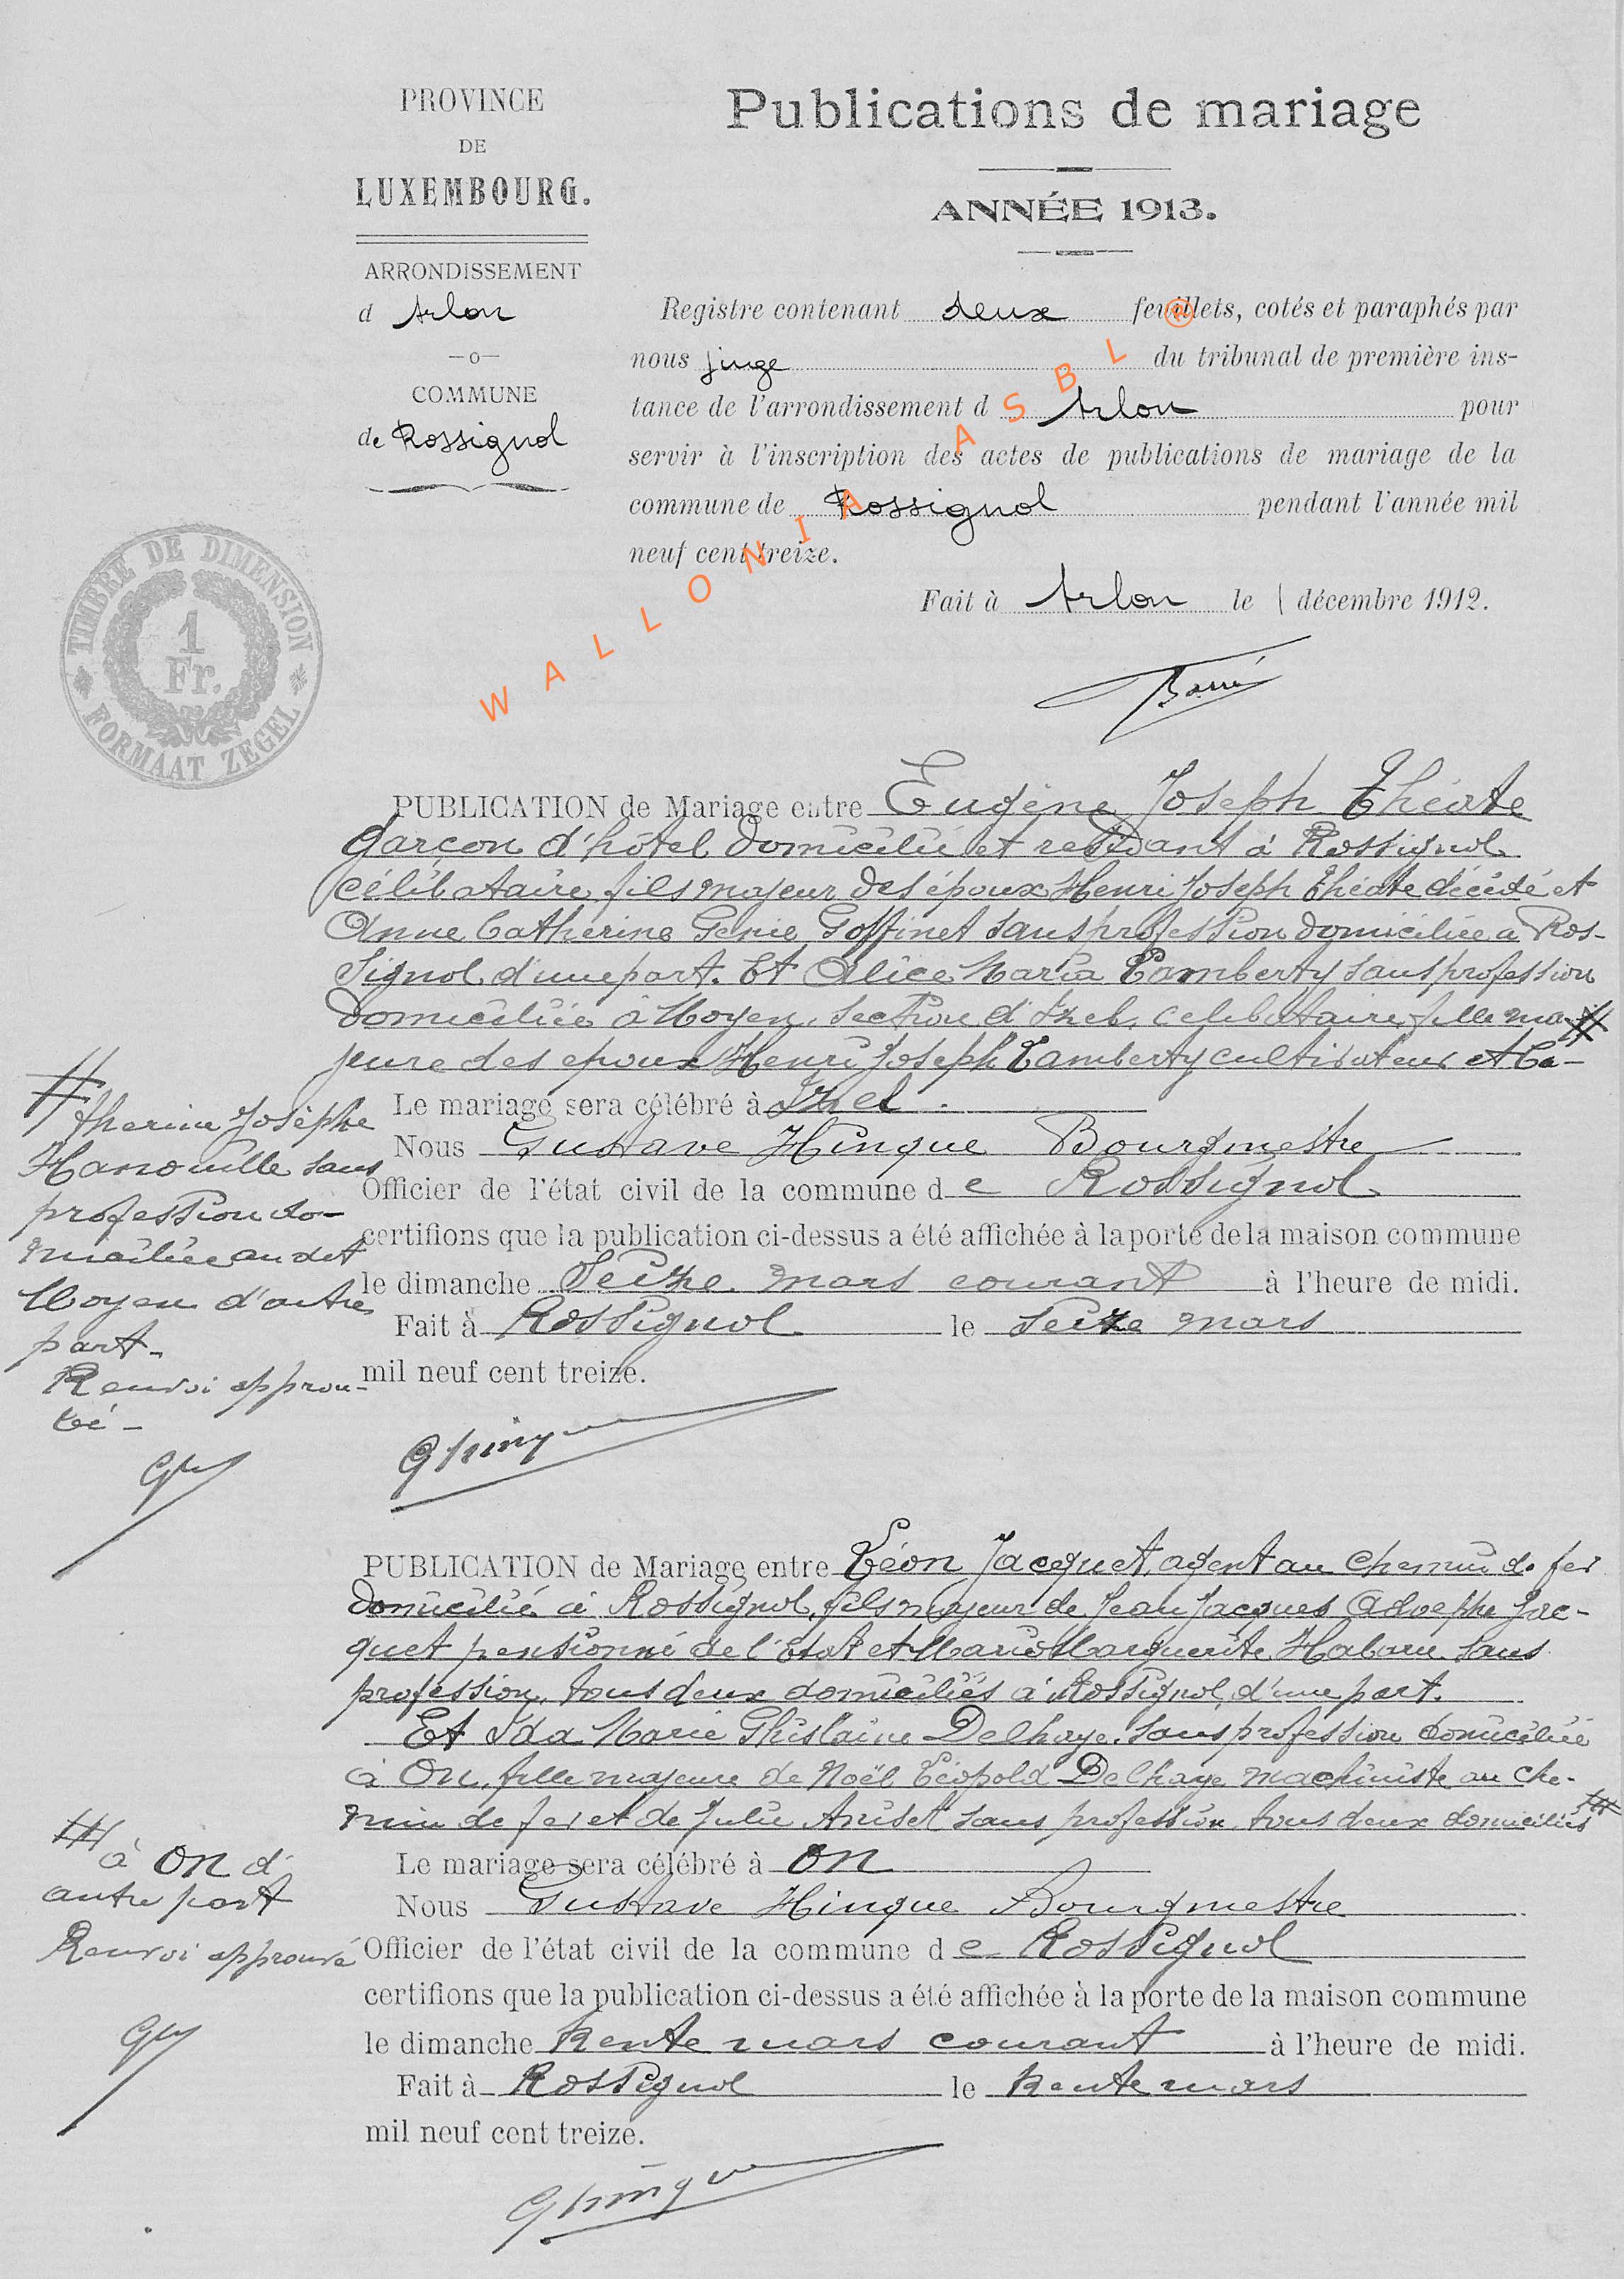 PROVINCE
DE
LUXEMBOURG.
ARRONDISSEMENT
d'Arlon
—o—
COMMUNE
de Rossignol
Publications de mariage
ANNÉE 1913.
Registre contenant deux feuillets, cotés et paraphés par
nous juge du tribunal de première ins-
tance de l'arrondissement d Arlon pour
servir à l'inscription des actes de publications de mariage de la
commune de Rossignol pendant l'année mil
neuf cent treize.
Fait à Arlon le 1 décembre 1912.
WALLONIA ASBL ®
TIMBRE DE DIMENSION
1
Fr.
FORMAAT ZEGEL
PUBLICATION de Mariage entre Eugène Joseph Théate
garçon d'hôtel domicilié et résidant à Rossignol
célibataire, fils majeur des époux Henri Joseph Théate décédé et
Anne Catherine Génie Goffinet sans profession domiciliée à Ros-
signol d'une part. Et Alice Maria Lamberty sans profession
domiciliée à Moyen, section d'Izel, célibataire, fille ma-
jeure des époux Henri Joseph Lamberty cultivateur et Ca- #
# therine Josèphe
Hanouille sans
profession do-
miciliée audit
Moyen d'autre
part.
Renvoi approu-
vé -
Le mariage sera célébré à Izel.
Nous Gustave Hinque Bourgmestre
Officier de l'état civil de la commune de Rossignol
certifions que la publication ci-dessus a été affichée à la porte de la maison commune
le dimanche Seize mars courant à l'heure de midi.
Fait à Rossignol le Seize mars
mil neuf cent treize.
GHinque
PUBLICATION de Mariage entre Léon Jacquet, agent au chemin de fer
domicilié à Rossignol, fils majeur de Jean Jacques Adolphe Jac-
quet pensionné de l'Etat et Marie Marguerite Habaru sans
profession, tous deux domiciliés à Rossignol, d'une part.
Et Ida Marie Ghislaine Delhaye, sans profession domiciliée
à On, fille majeure de Noël Léopold Delhaye machiniste au che-
min de fer et de Julie Aniset sans profession, tous deux domiciliés #
# à On d'
autre part
Renvoi approuvé
Le mariage sera célébré à On
Nous Gustave Hinque Bourgmestre
Officier de l'état civil de la commune de Rossignol
certifions que la publication ci-dessus a été affichée à la porte de la maison commune
le dimanche trente mars courant à l'heure de midi.
Fait à Rossignol le trente mars
mil neuf cent treize.
GHinque